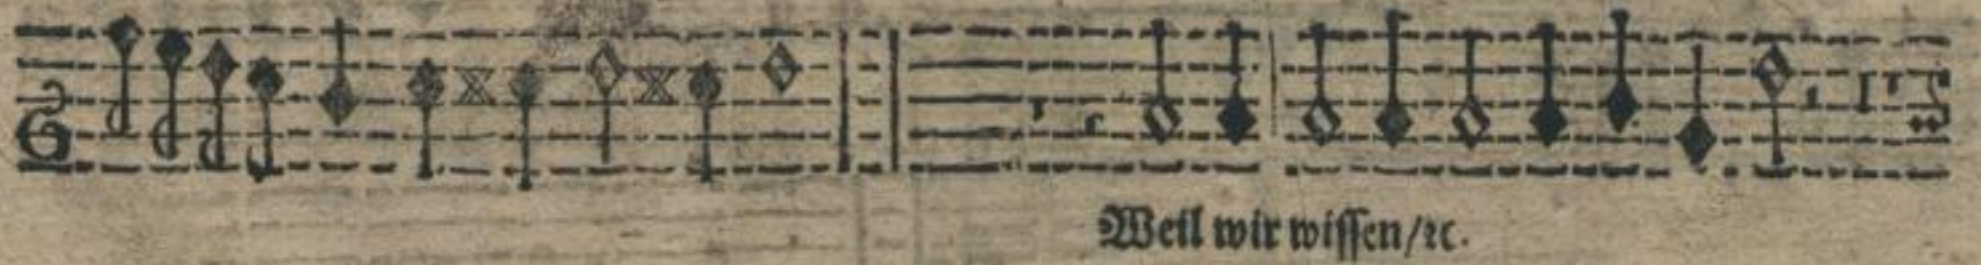 Weil wir wissen/ꝛc.